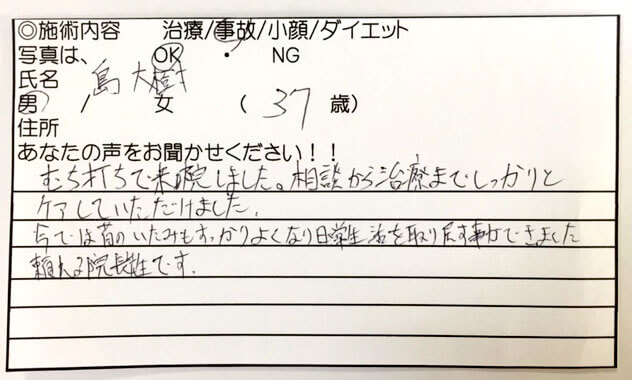 ◎施術内容　治療/事故/小顔/ダイエット
写真は、　OK　・　NG
氏名　島 大樹
男　/　女　(　37　歳)
住所
あなたの声をお聞かせください！！
むち打ちで来院しました。相談から治療までしっかりと
ケアしていただけました。
今では首のいたみもすっかりよくなり日常生活を取り戻す事ができました
頼れる院長先生です.